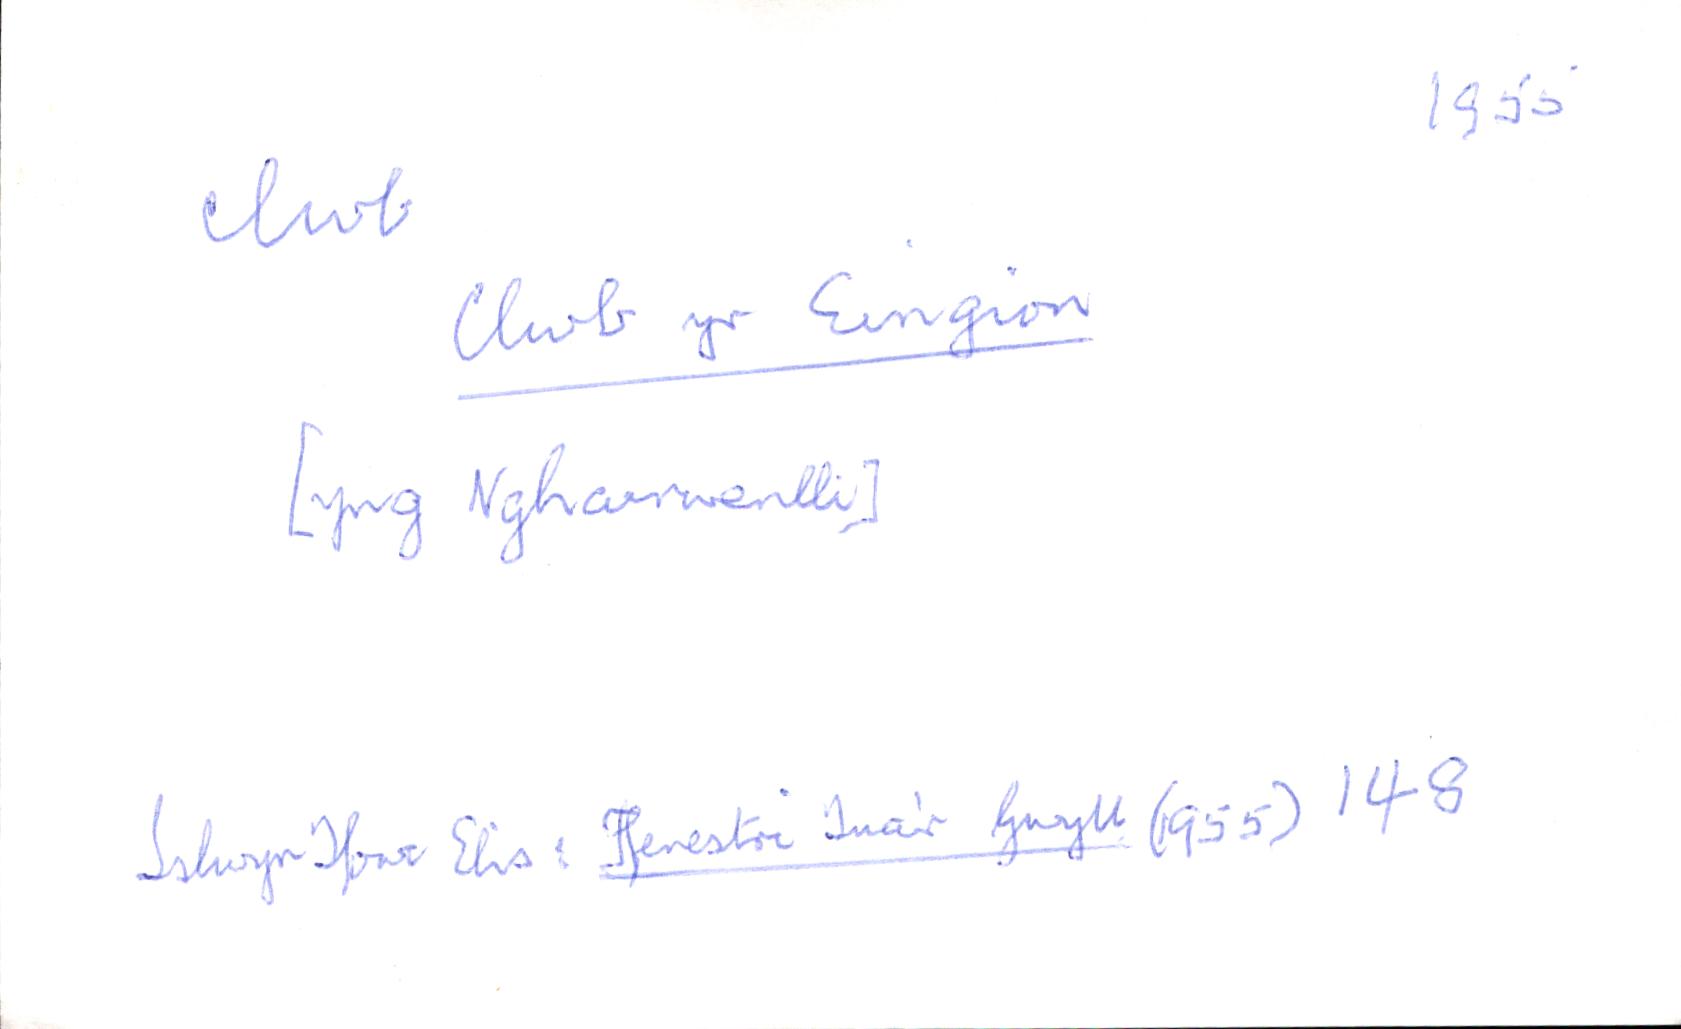 1955
clwb
Clwb yr Eingion
[yng Nghaerwenlli]
Islwyn Ffowc Elis : Ffenestri Tua'r Gwyll (1955) 148